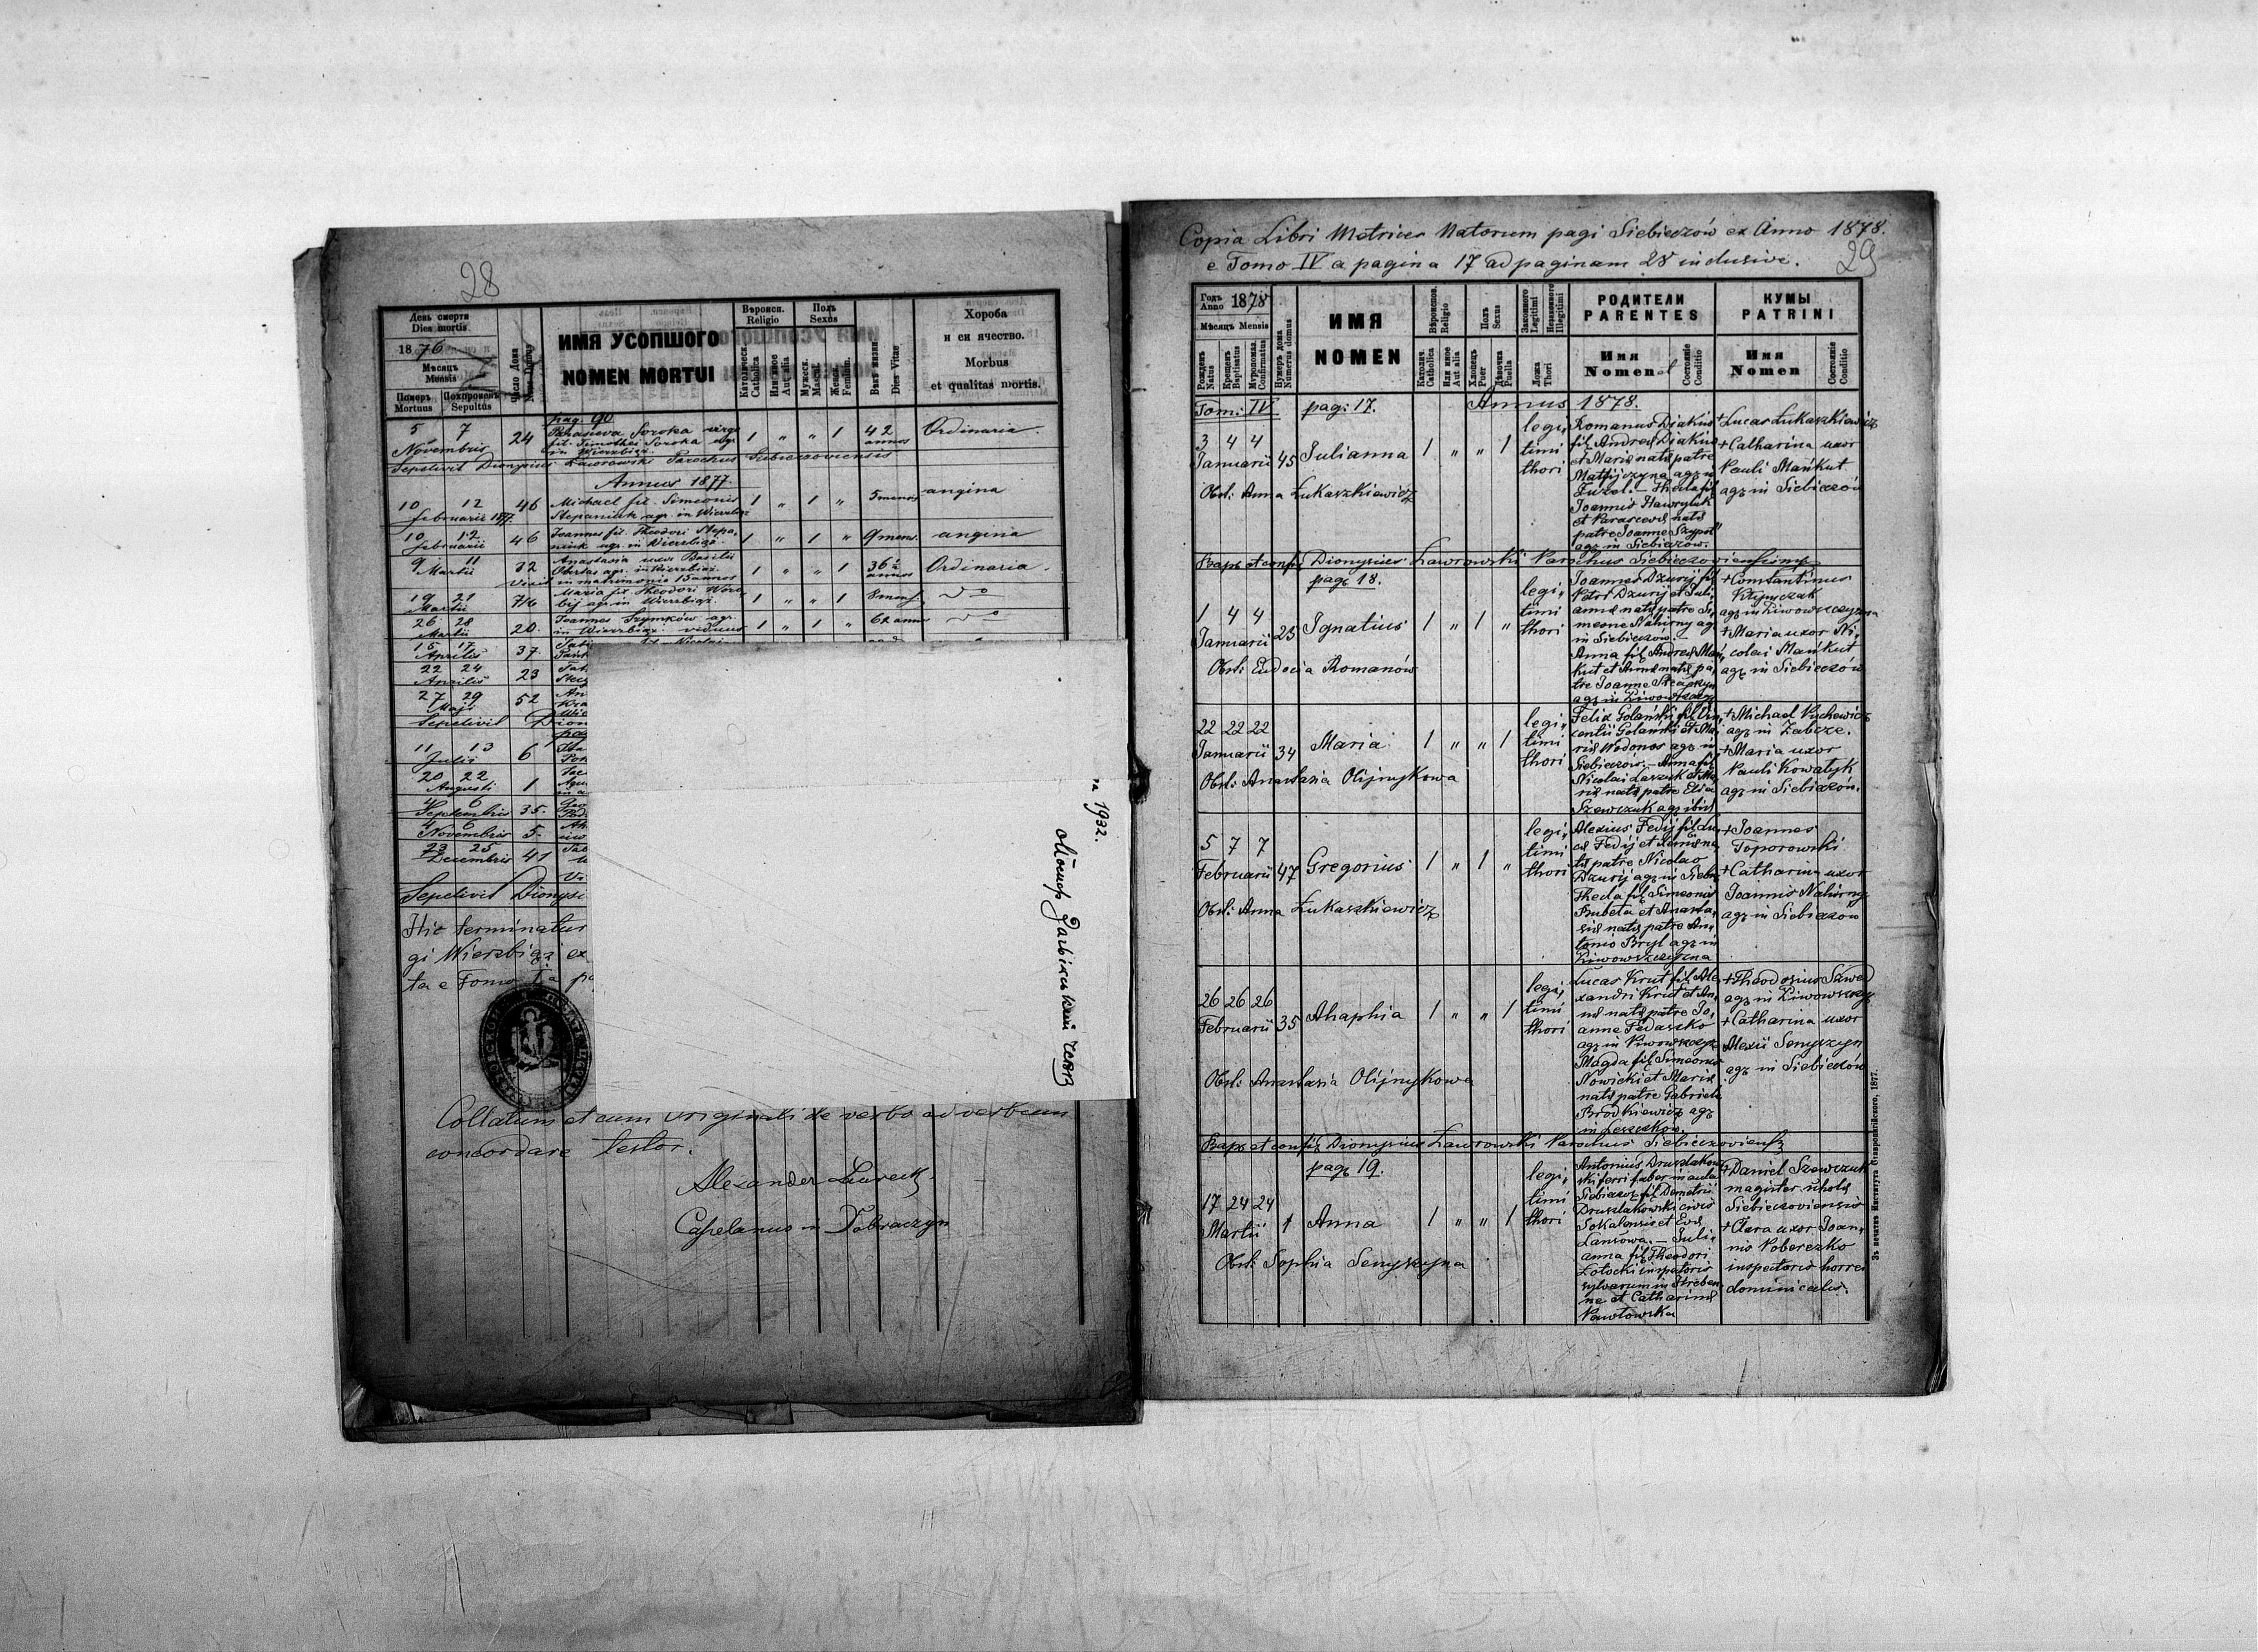 28
День смерти
Dies mortis
1876
Мѣсяцъ
Mensis
Померъ
Mortuus
Похороненъ
Sepultus
Число Дома
ИМЯ УСОПШОГО
NOMEN MORTUI
Вѣроисп.
Religio
Католическ.
Catholica
Или иное
Aut alia
Полъ
Sexus
Мужеск.
Mascul.
Женск.
Feminin.
Вѣкъ жизни
Dies Vitae
Хороба
и єи ячество.
Morbus
et qualitas mortis.
pag. 90
5 7 Novembris 24 Parasceva Soroka virgo
fil. Timothei Soroka agr.
in Wierzbiąż 1 " " 1 42 annos Ordinaria
Sepelivit Dionysius Ławrowski Parochus Siebieczoviensis
Annus 1877.
10 12 Februarii 1877. 46 Michael fil. Simeonis
Stepaniuk agr. in Wierzbiąż 1 " 1 " 5 mens. angina
10 12 Februarii 46 Joannes fil. Theodori Stepa,
niuk agr. in Wierzbiąż. 1 " 1 " 9 mens. angina
9 11 Martii 32 Anastasia uxor Basilii
agr. in Wierzbiąż.
Vixit in matrimonio 15 annos 1 " " 1 36 annos Ordinaria.
19 21 Martii Maria fil. Theodori
agr. in Wierzbiąż. 1 " " 1 8 mens.
26 28 Martii 20. Joannes Szymków agr.
in Wierzbiąż viduus 1 " 1 " 62 annos
15 17 Aprilis 37.
22 24 Aprilis 23
27 29 Maji 52
Sepelivit Dion
11 13 Julii 6
20 22 Augusti 1
4 6 Septembris 35.
4 6 Novembris 5.
23 25 Decembris 41
Sepelivit Dionysi
Hic terminatur
gi Wierzbiąż ex
ta e Tomo
на 1932.
Collatum et cum originali de verbo ad verbum
concordare testor.
Alexander
Capelanus in Dobraczyn
Copia Libri Metrices Natorum pagi Siebieczów ex Anno 1878.
e Tomo IV a pagina 17 ad paginam 28 inclusive.
29
Годъ
Anno 1878
Мѣсяцъ Mensis
Рожденъ
Natus
Крещенъ
Baptisatus
Муропомаз.
Confirmatus
Нумеръ дома
Numerus domus
ИМЯ
NOMEN
Вѣроиспов.
Religio
Католич.
Catholica
Или иное
Aut alia
Полъ
Sexus
Хлопець
Puer
Дѣвочка
Puella
Законного
Legitimi
Незаконного
Illegitimi
Ложа
Thori
РОДИТЕЛИ
PARENTES
Имя
Nomen
Состояніе
Conditio
КУМЫ
PATRINI
Имя
Nomen
Состояніе
Conditio
Tom: IV pag: 17. Annus 1878.
3 4 4 Januarii 45 Julianna 1 " " 1 legi,
timi
thori
Romanus Diakus
fil. Andreæ Diakus
et Mariæ natæ patre
agr. in
Joannis Hawryluk
et Parascevæ natæ
patre Joanne
agr. in Siebieczów.
+ Lucas Łukaszkiewicz
+ Catharina uxor
Pauli Mańkut
agr. in Siebieczów
Obst: Anna Łukaszkiewicz
Bapt. et conf. Dionysius Ławrowski Parochus Siebieczoviensis
pag. 18.
1 4 4 Januarii 25 Ignatius 1 " 1 " legi,
timi
thori
Joannes Dzurij fil.
Petri Dzurij et Juli,
annæ natæ patre Si,
meone Nahirny agr.
in Siebieczów. –
Anna fil. Andreæ Mań,
kut et Annæ natæ pa,
tre Joanne
+ Constantinus
agr. in Liwowszczyzna
+ Maria uxor Ni,
colai Mańkut
agr. in Siebieczów
Obst: Eudocia Romanów
22 22 22 Januarii 34 Maria 1 " " 1 legi,
timi
thori
Felix Golański fil. Vin,
centii Golański et Ma,
riæ Wodonos agr. in
Siebieczów. – Anna fil.
Nicolai Laszuk et Ma,
riæ natæ patre Elia
Szewczuk agr. ibid.
+ Michael Kuchewicz
agr. in Zabcze.
+ Maria uxor
Pauli Kowalyk
agr. in Siebieczów.
Obst: Anastasia Olijnykowa
5 7 7 Februarii 47 Gregorius 1 " 1 " legi,
timi
thori
Alexius Fedij fil. Lu,
cæ Fedij et
patre Nicolao
Dzurij agr. in Siebiecz.
Thecla fil. Simeonis
Bubeta et Anasta,
siæ natæ patre An,
tonio Bryl agr. in
Liwowszczyzna
+ Joannes
Toporowski
+ Catharina uxor
Joannis Nahirny
agr. in Siebieczów
Obst: Anna Łukaszkiewicz
26 26 26 Februarii 35 Ahaphia 1 " " 1 legi,
timi
thori
Lucas Krut fil. Ale,
xandri Krut et An,
næ natæ patre Jo,
anne Fedaszko
agr. in Liwowszczyz.
Magda fil. Simeonis
Nowicki et Mariæ
natæ patre Gabriele
Brodkiewicz agr.
in Leszczków.
+ Theodosius Szwed
agr. in Liwowszczyz.
+ Catharina uxor
Alexii Senyszyn
agr. in Siebieczów
Obst: Anastasia Olijnykowa
Bapt. et conf. Dionysius Ławrowski Parochus Siebieczoviens.
pag. 19.
17 24 24 Martii 1 Anna 1 " " 1 legi,
timi
thori
Antonius Druszlakow,
ski ferri faber in aula
Siebieczów fil. Demetrii
Druszlakowski civis
Sokalensis et Evæ
Lansowa. – Juli,
anna fil. Theodori
Łotocki inspectoris
sylvarum in
ne et Catharinæ
Pawłowska
+ Daniel Szewczuk
magister scholæ
Siebieczoviensis
+ Clara uxor Joan,
nis Pobereżko
inspectoris horrei
dominicalis.
Obst: Sophia Senyszyna
Зъ печатнѣ Института Ставропигійского, 1877.